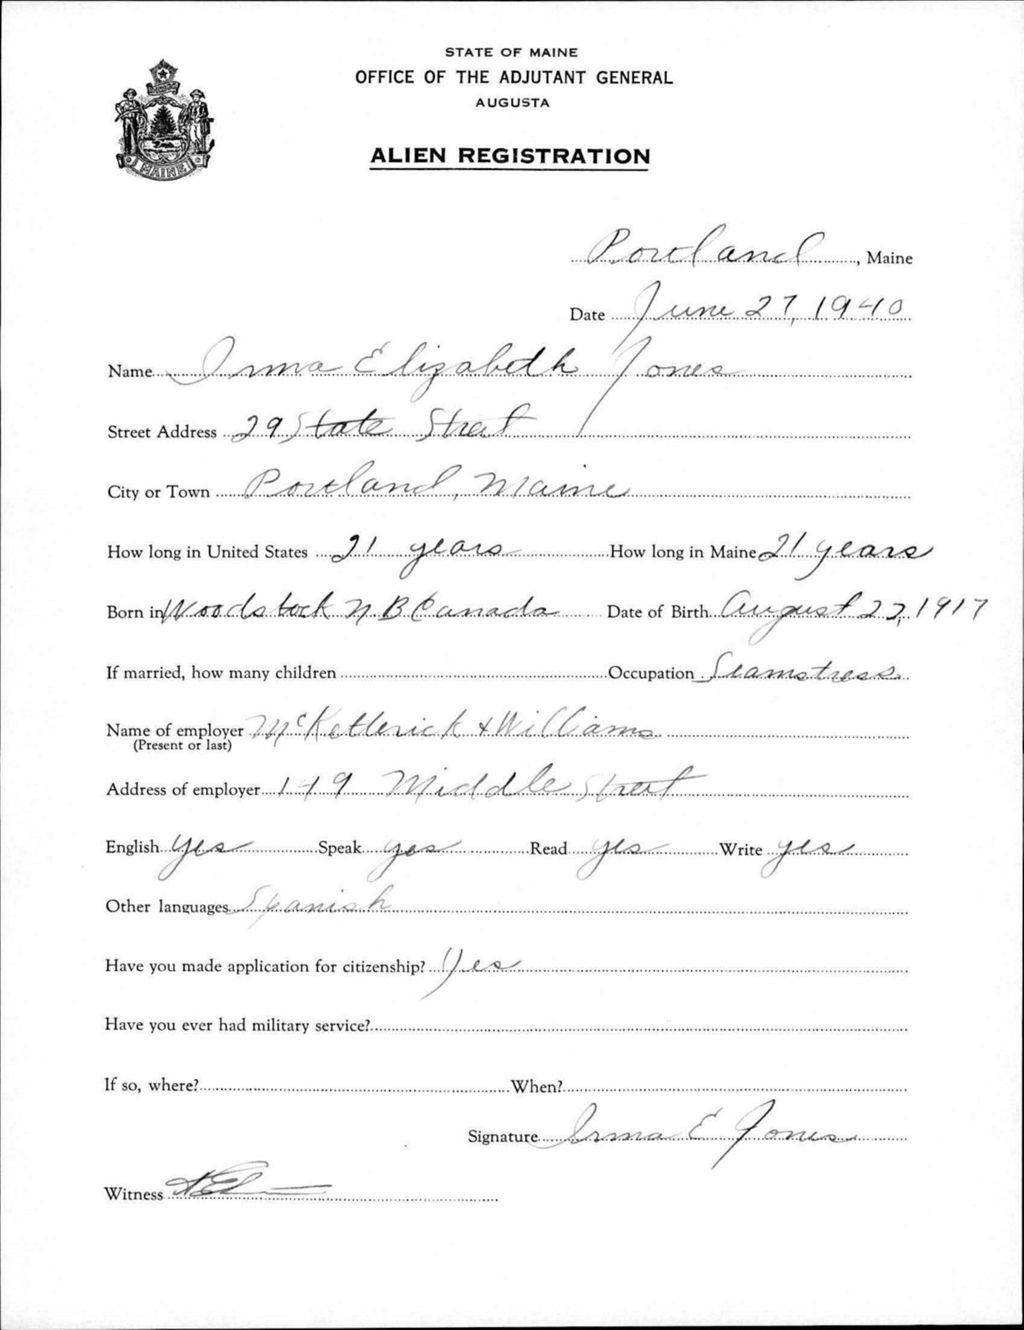 STATE OF MAINE
OFFICE OF THE ADJUTANT GENERAL
AUGUSTA
ALIEN REGISTRATION
MAINE
Portland, Maine
Date June 27, 1940
Name Irma Elizabeth Jones
Street Address 29 State Street
City or Town Portland, Maine
How long in United States 21 years How long in Maine 21 years
Born in Woodstock N.B Canada Date of Birth August 27, 1917
If married, how many children Occupation Seamstress
Name of employer McKetterick & Williams
(Present or last)
Address of employer 149 Middle Street
English yes Speak yes Read yes Write yes
Other languages Spanish
Have you made application for citizenship? Yes
Have you ever had military service?
If so, where? When?
Signature Irma E Jones
Witness